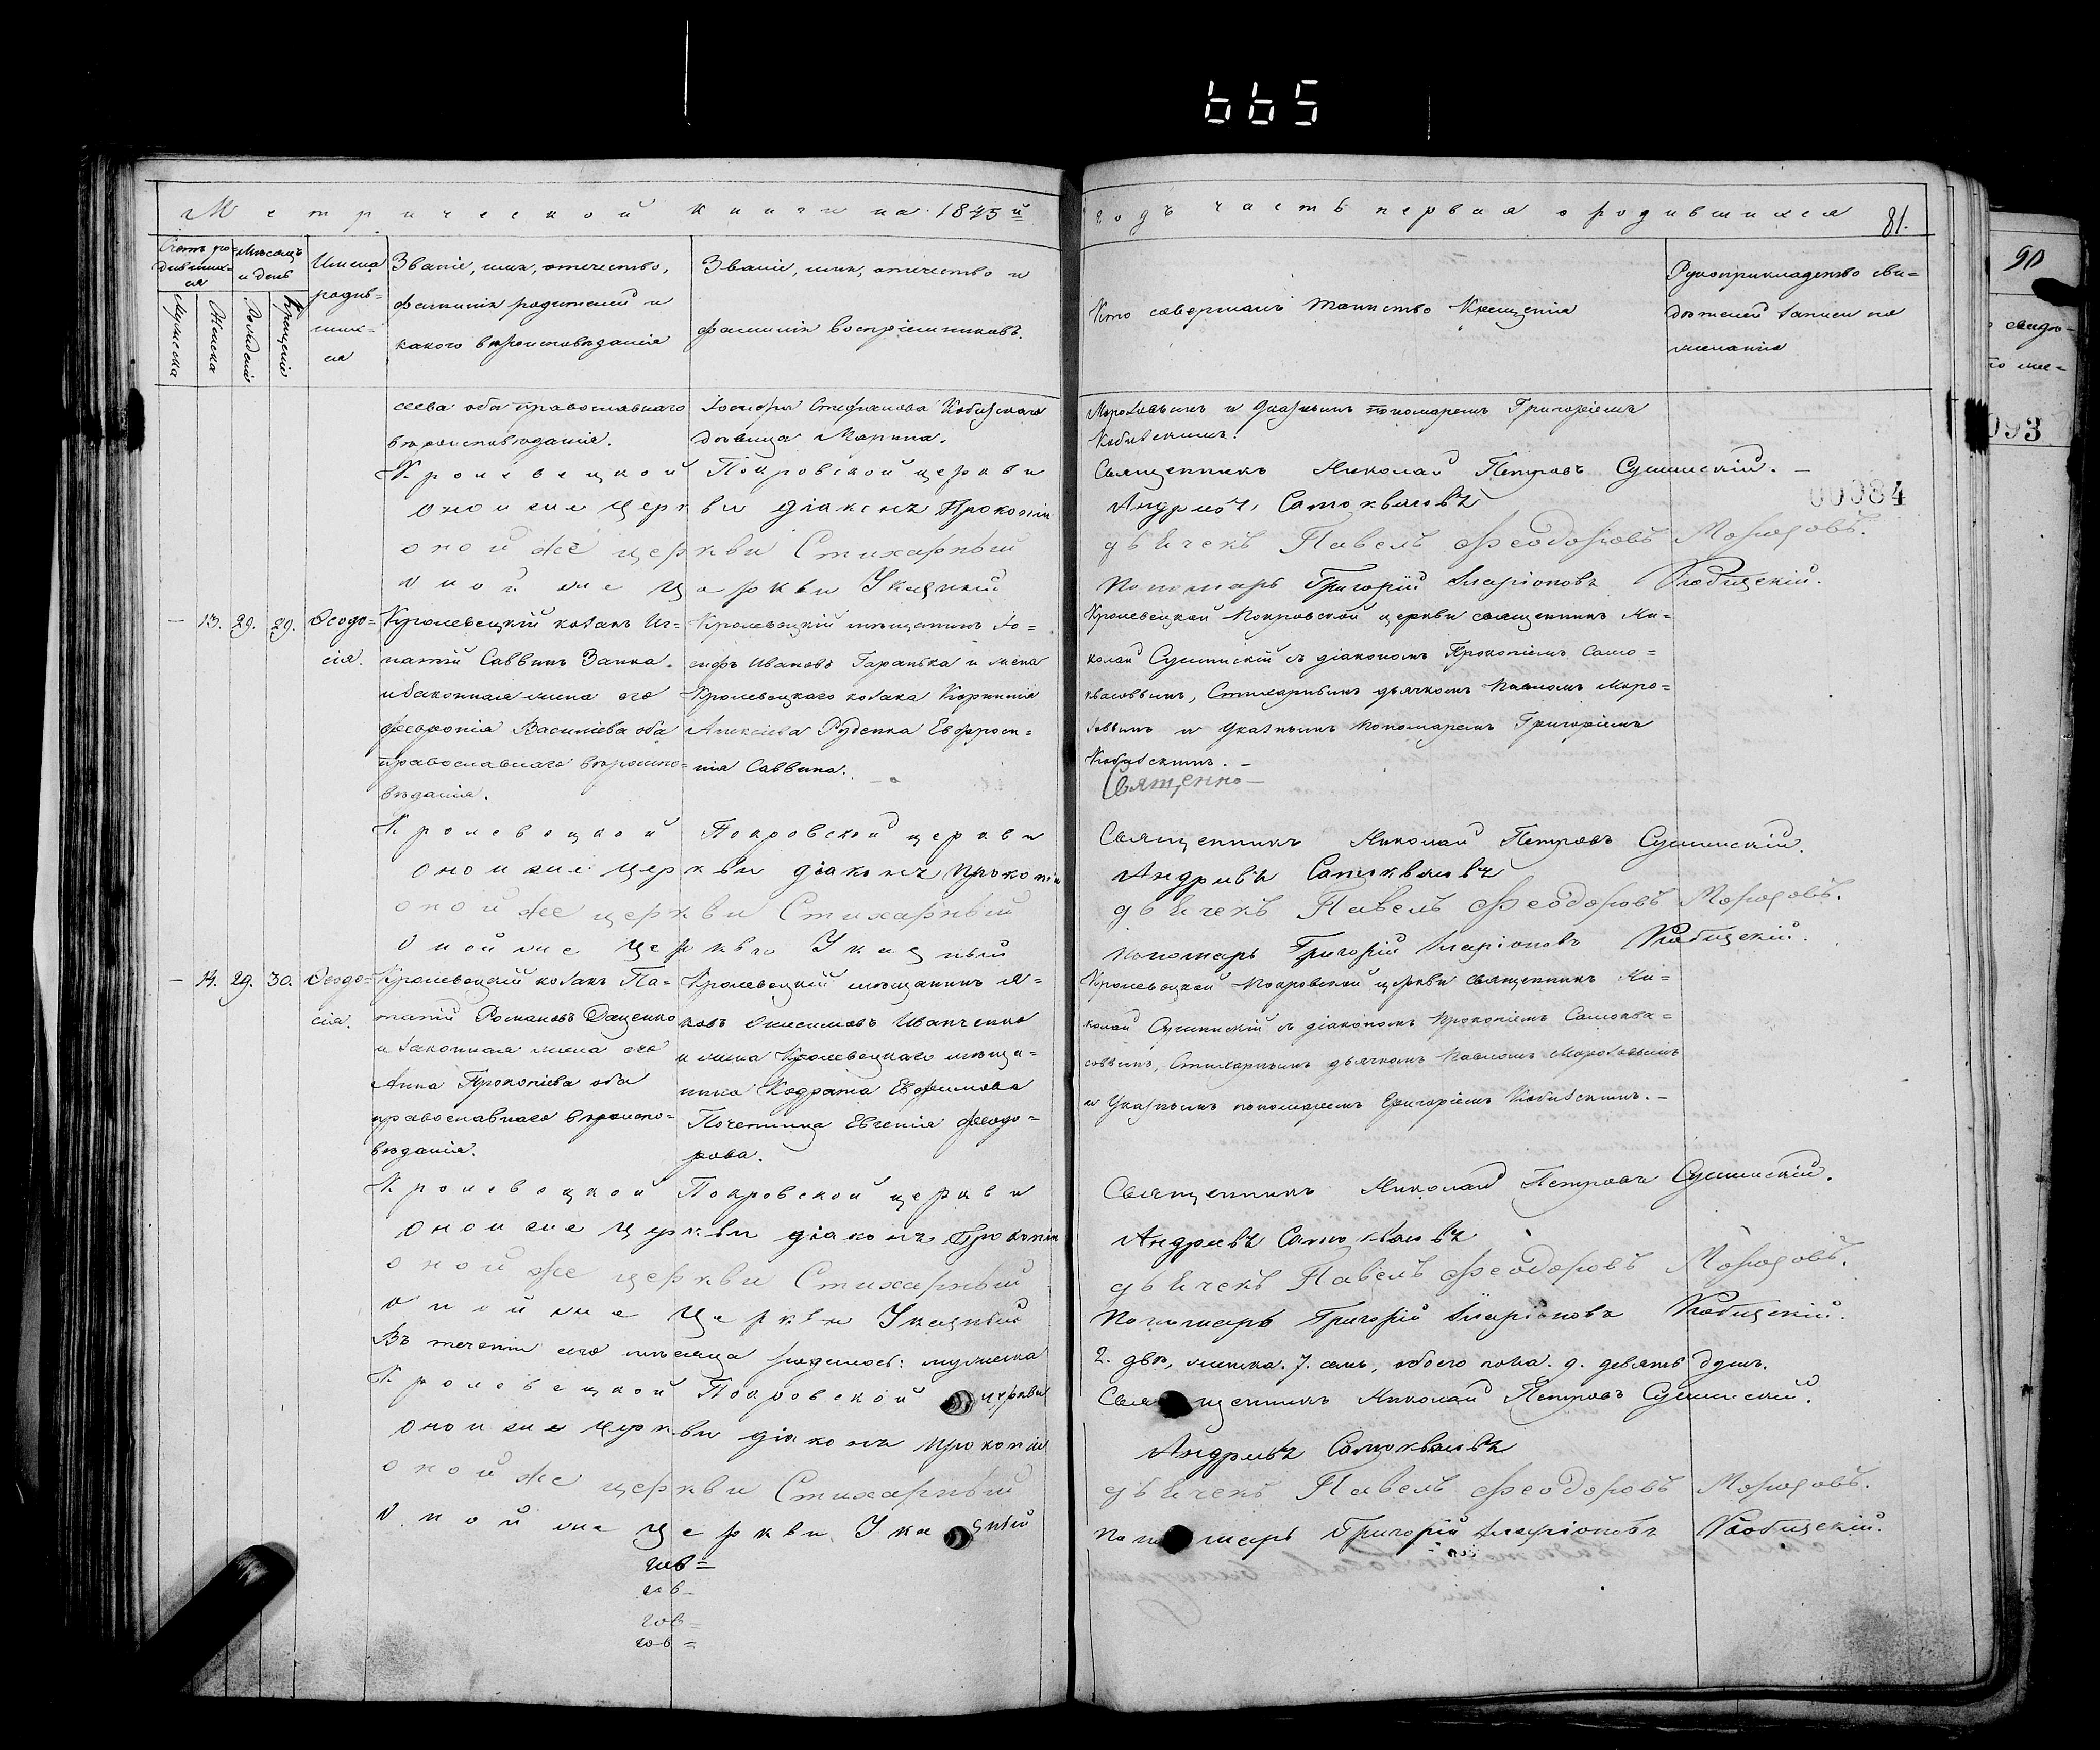 665
Метрической книги на 1845й
годъ часть первая о родившихся
81.
Счетъ ро=
дивших=
ся
Мѣсяцъ
и день
Мужеска
Женска
Рожденія
Крещенія
Имена
родив=
ших=
ся
Званіе, имя, отечество,
фамилія родителей и
какого вѣроисповѣданія
Званіе, имя, отечество и
фамилія воспріемниковъ.
Кто совершалъ таинство Крещенія
Рукоприкладство сви=
дѣтелей записи по
желанію
сеева оба православнаго
вѣроисповѣданія.
Іосифа Стефанова Кобызскаго
дѣвица Марина.
Морозовымъ и Указнымъ пономаремъ Григоріемъ
Кобызскимъ.
Кролевецкой Покровской церкви
Священникъ Николай Петровъ Сушинскій. –
00084
оной же церкви діаконъ Прокопій
Андреевъ Самоквасовъ
оной же церкви Стихарный
дьячекъ Павелъ Феодоровъ Морозовъ.
оной же церкви Указный
пономарь Григорій Иларіоновъ Кобызскій.
– 13. 29. 29. Ѳеодо=
сія.
Кролевецкій козакъ Иг=
натій Саввинъ Заика
и законная жена его
Февронія Василіева оба
православнаго вѣроиспо=
вѣданія.
Кролевецкій мѣщанинъ Іо=
сифъ Ивановъ Гаранька и жена
Кролевецкаго козака
Алексіева Руденка Евфроси=
нія Саввина.
Кролевецкой Покровской церкви священникъ Ни=
колай Сушинскій съ діакономъ Прокопіемъ Само=
квасовымъ, Стихарнымъ дьячкомъ Павломъ Моро=
зовымъ и Указнымъ пономаремъ Григоріемъ
Кобызскимъ. –
Священно–
Кролевецкой Покровской церкви
Священникъ Николай Петровъ Сушинскій.
оной же церкви діаконъ Прокопій
Андреевъ Самоквасовъ
оной же церкви Стихарный
дьячекъ Павелъ Феодоровъ Морозовъ.
оной же церкви Указный
пономарь Григорій Иларіоновъ Кобызскій.
– 14. 29. 30. Ѳеодо=
сія.
Кролевецкій козакъ Па=
татій Романовъ Даценко
и законная жена его
Анна Прокопіева оба
православнаго вѣроиспо=
вѣданія.
Кролевецкій мѣщанинъ Я=
ковъ Онисимовъ Иванченко
и жена Кролевецкаго мѣща=
нина Кодрата Евфимова
Евгенія Феодо=
рова.
Кролевецкой Покровской церкви священникъ Ни=
колай Сушинскій съ діакономъ Прокопіемъ Самоква=
совымъ, Стихарнымъ дьячкомъ Павломъ Морозовымъ
и Указнымъ пономаремъ Григоріемъ Кобызскимъ. –
Кролевецкой Покровской церкви
Священникъ Николай Петровъ Сушинскій.
оной же церкви діаконъ Прокопій
Андреевъ Самоквасовъ
оной же церкви Стихарный
дьячекъ Павелъ Феодоровъ Морозовъ.
оной же церкви Указный
пономарь Григорій Иларіоновъ Кобызскій.
Въ теченіи сего мѣсяца родилось: мужеска
2. два, женска. 7. семь, обоего пола. 9. девять душъ.
Кролевецкой Покровской церкви
Священникъ Николай Петровъ Сушинскій.
оной же церкви діаконъ Прокопій
Андреевъ Самоквасовъ
оной же церкви Стихарный
дьячекъ Павелъ Феодоровъ Морозовъ.
оной же церкви Указный
пономарь Григорій Иларіоновъ Кобызскій.
90
093